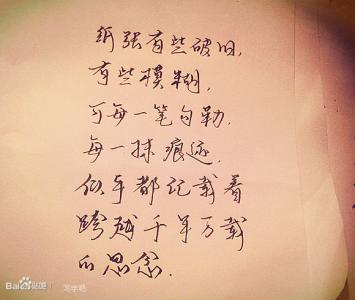 纸张有些破旧,
有些模糊,
可每一笔勾勒,
每一抹痕迹,
似乎都记载着
跨越千年万载
的思念.
Bai贴吧 写字吧